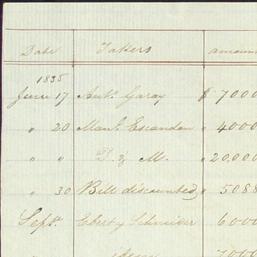 Date Takers amoun
1835
June 17 Ant. Garay $ 7000
" 20 Manl. Escandon " 4000
" " D. & M. " 20,000
" 30 Bill discounted " 5088
Sept. Ebert & Schneider 6000
idem 7000